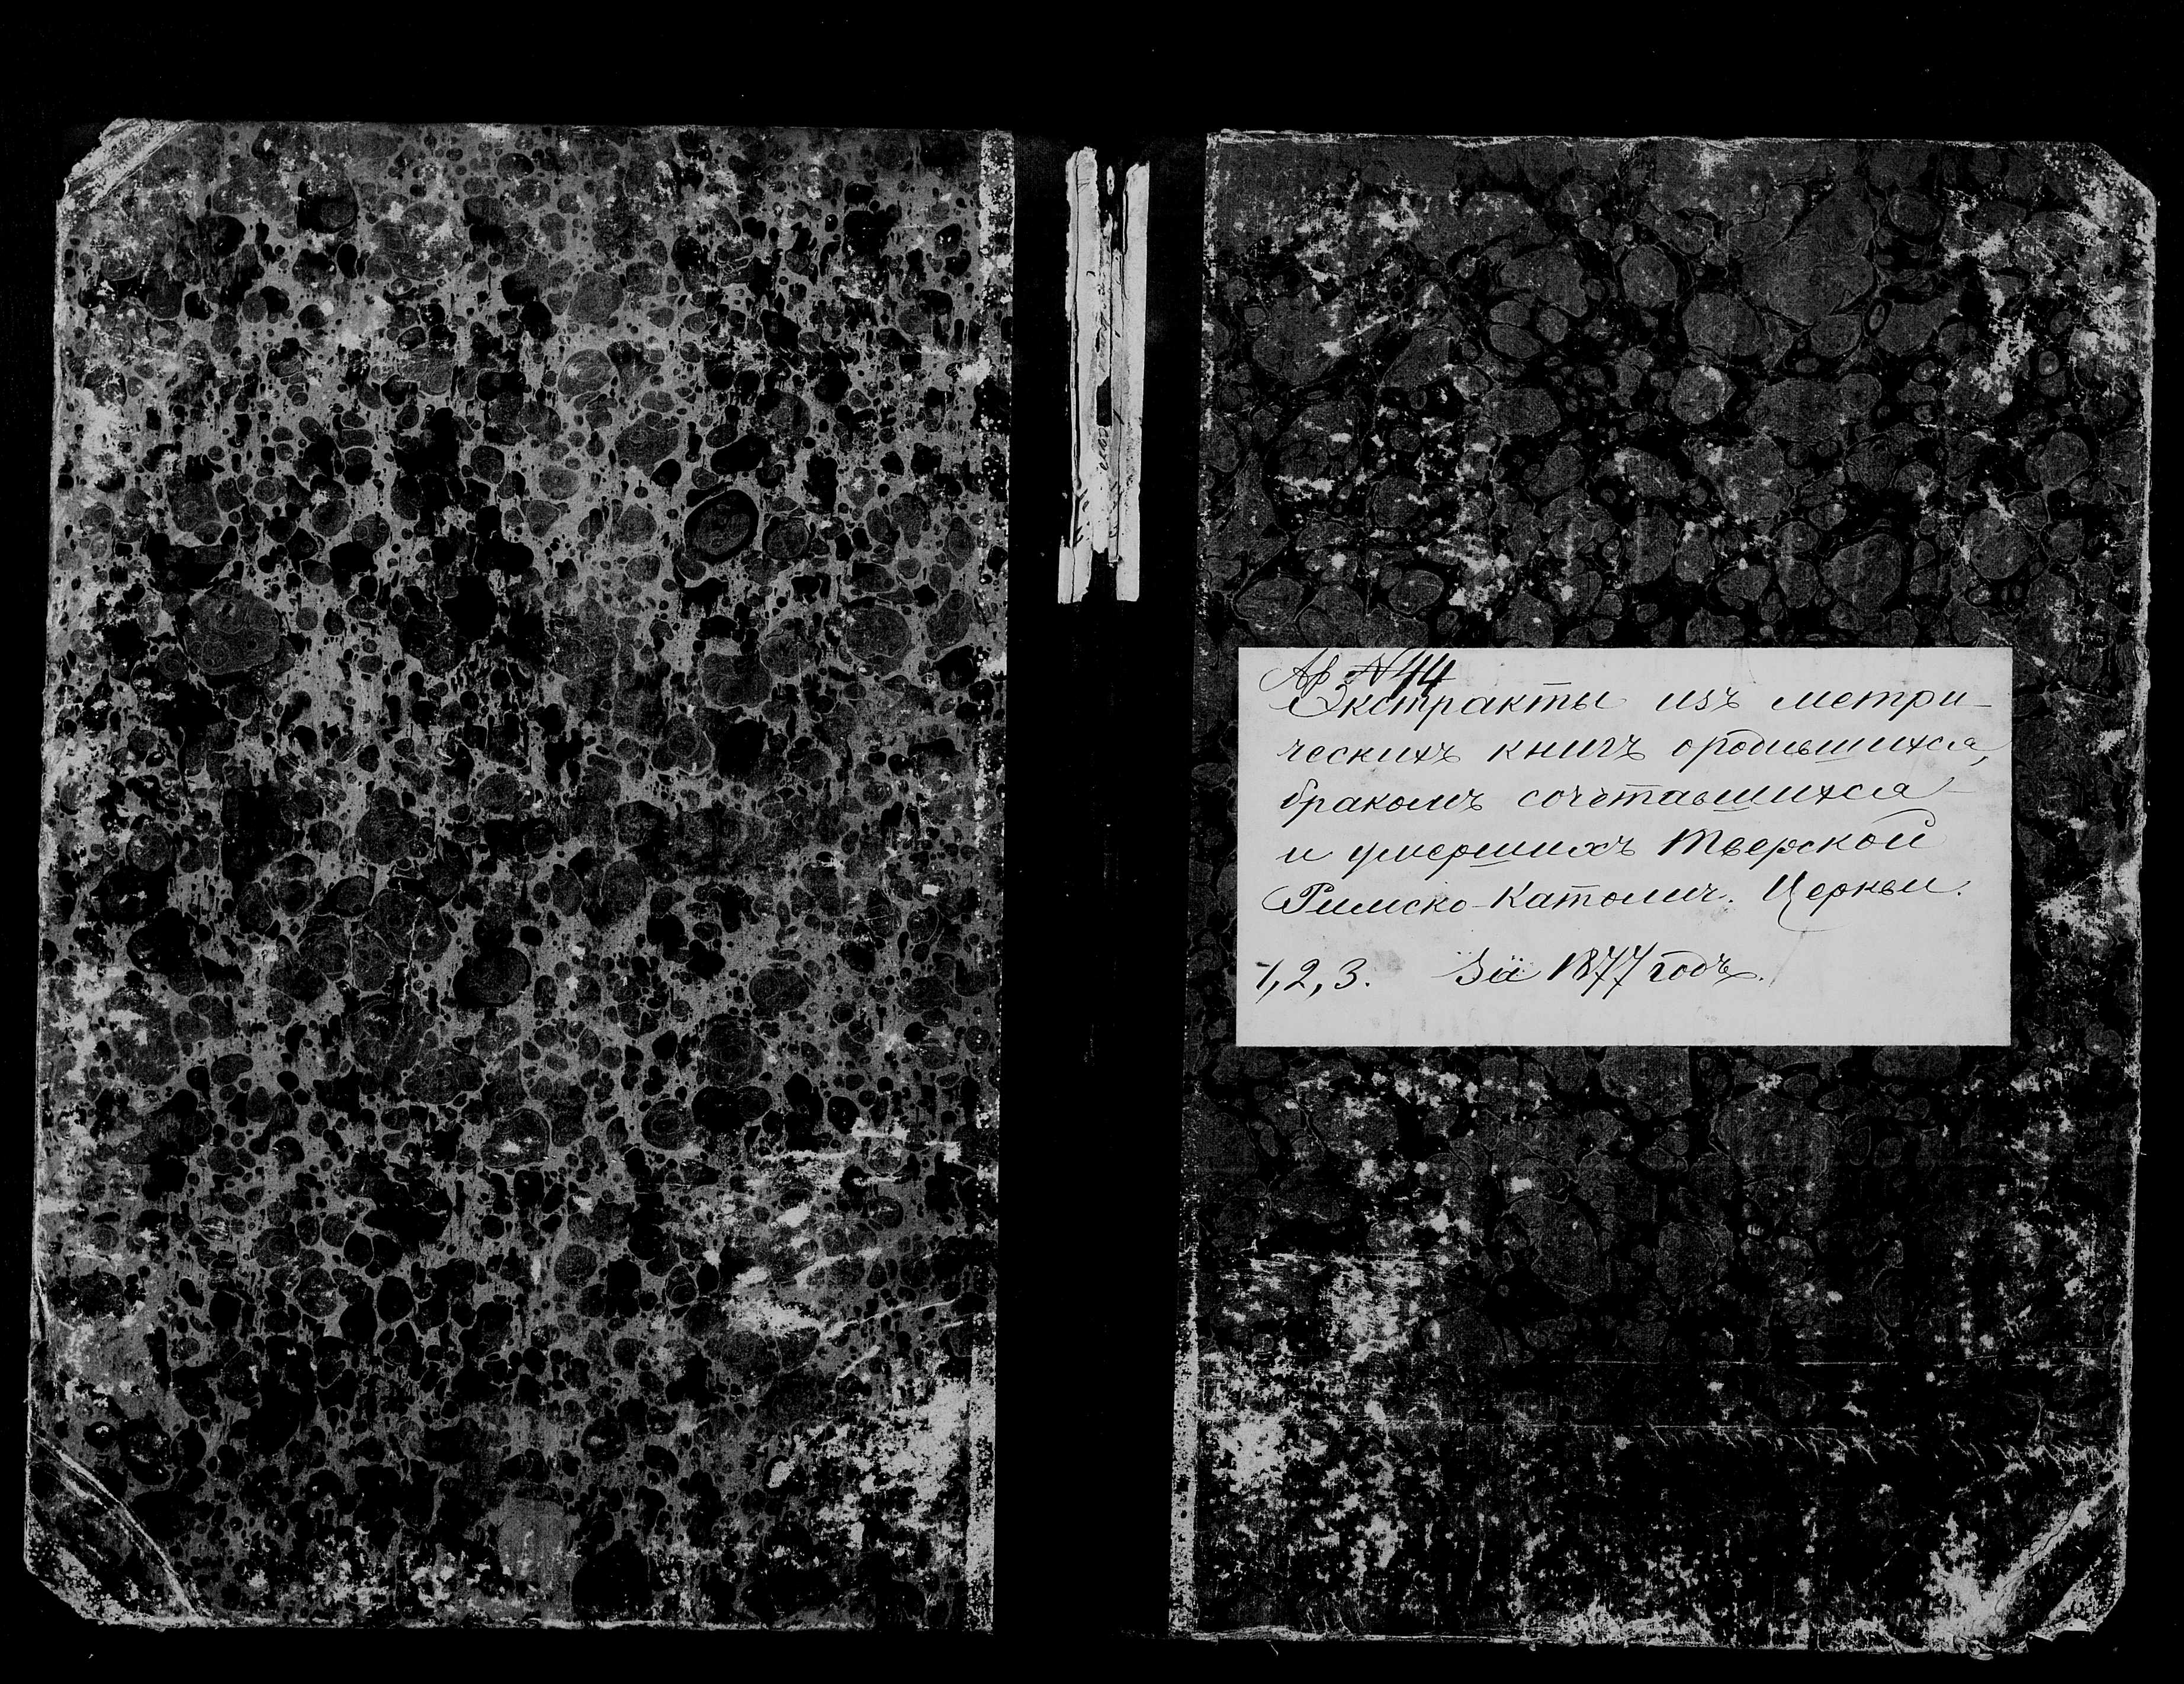 Ар №44
Экстракты изъ метри-
ческихъ книгъ о родившихся,
бракомъ сочетавшихся
и умершихъ Тверской
Римско-Католич. Церкви.
1, 2, 3. За 1877 годъ.